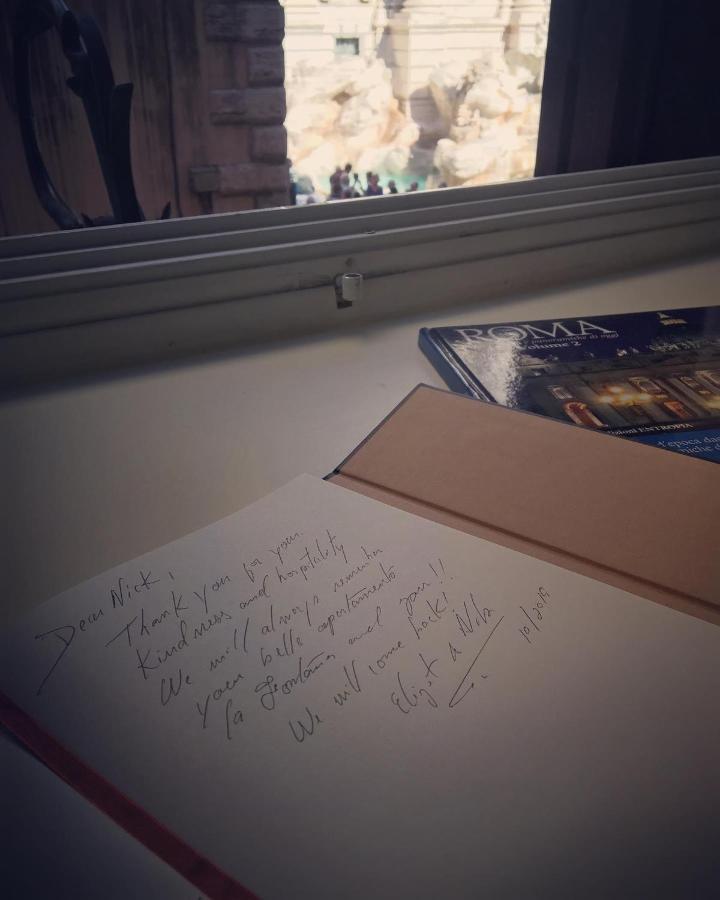 ROMA
Volume 2
panoramiche di oggi
Edizioni ENTROPIA
d'epoca
Dear Nick,
Thank you for your
kindness and hospitality
We will always remember
your bello apartamento
la Fontana and you!!
We will come back!
10/2019